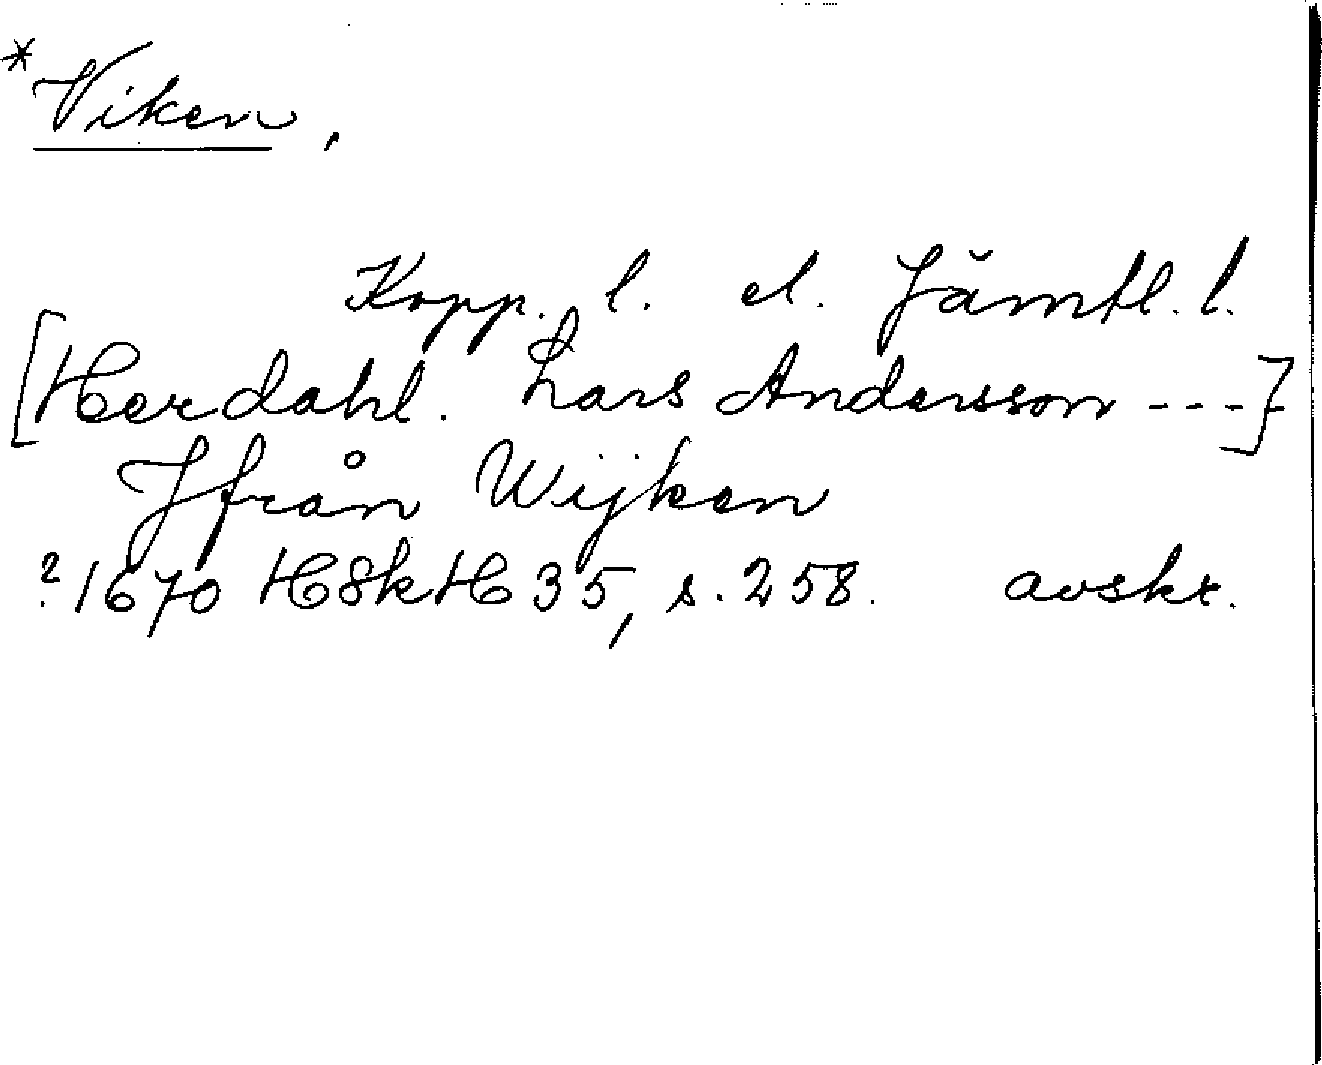 *Viken,
Kopp. l. el. Jämtl. l.
[Herdahl. Lars Andersson ----]
Jfrån Wijken
? 1670 HSkH 35, s. 258. avskr.